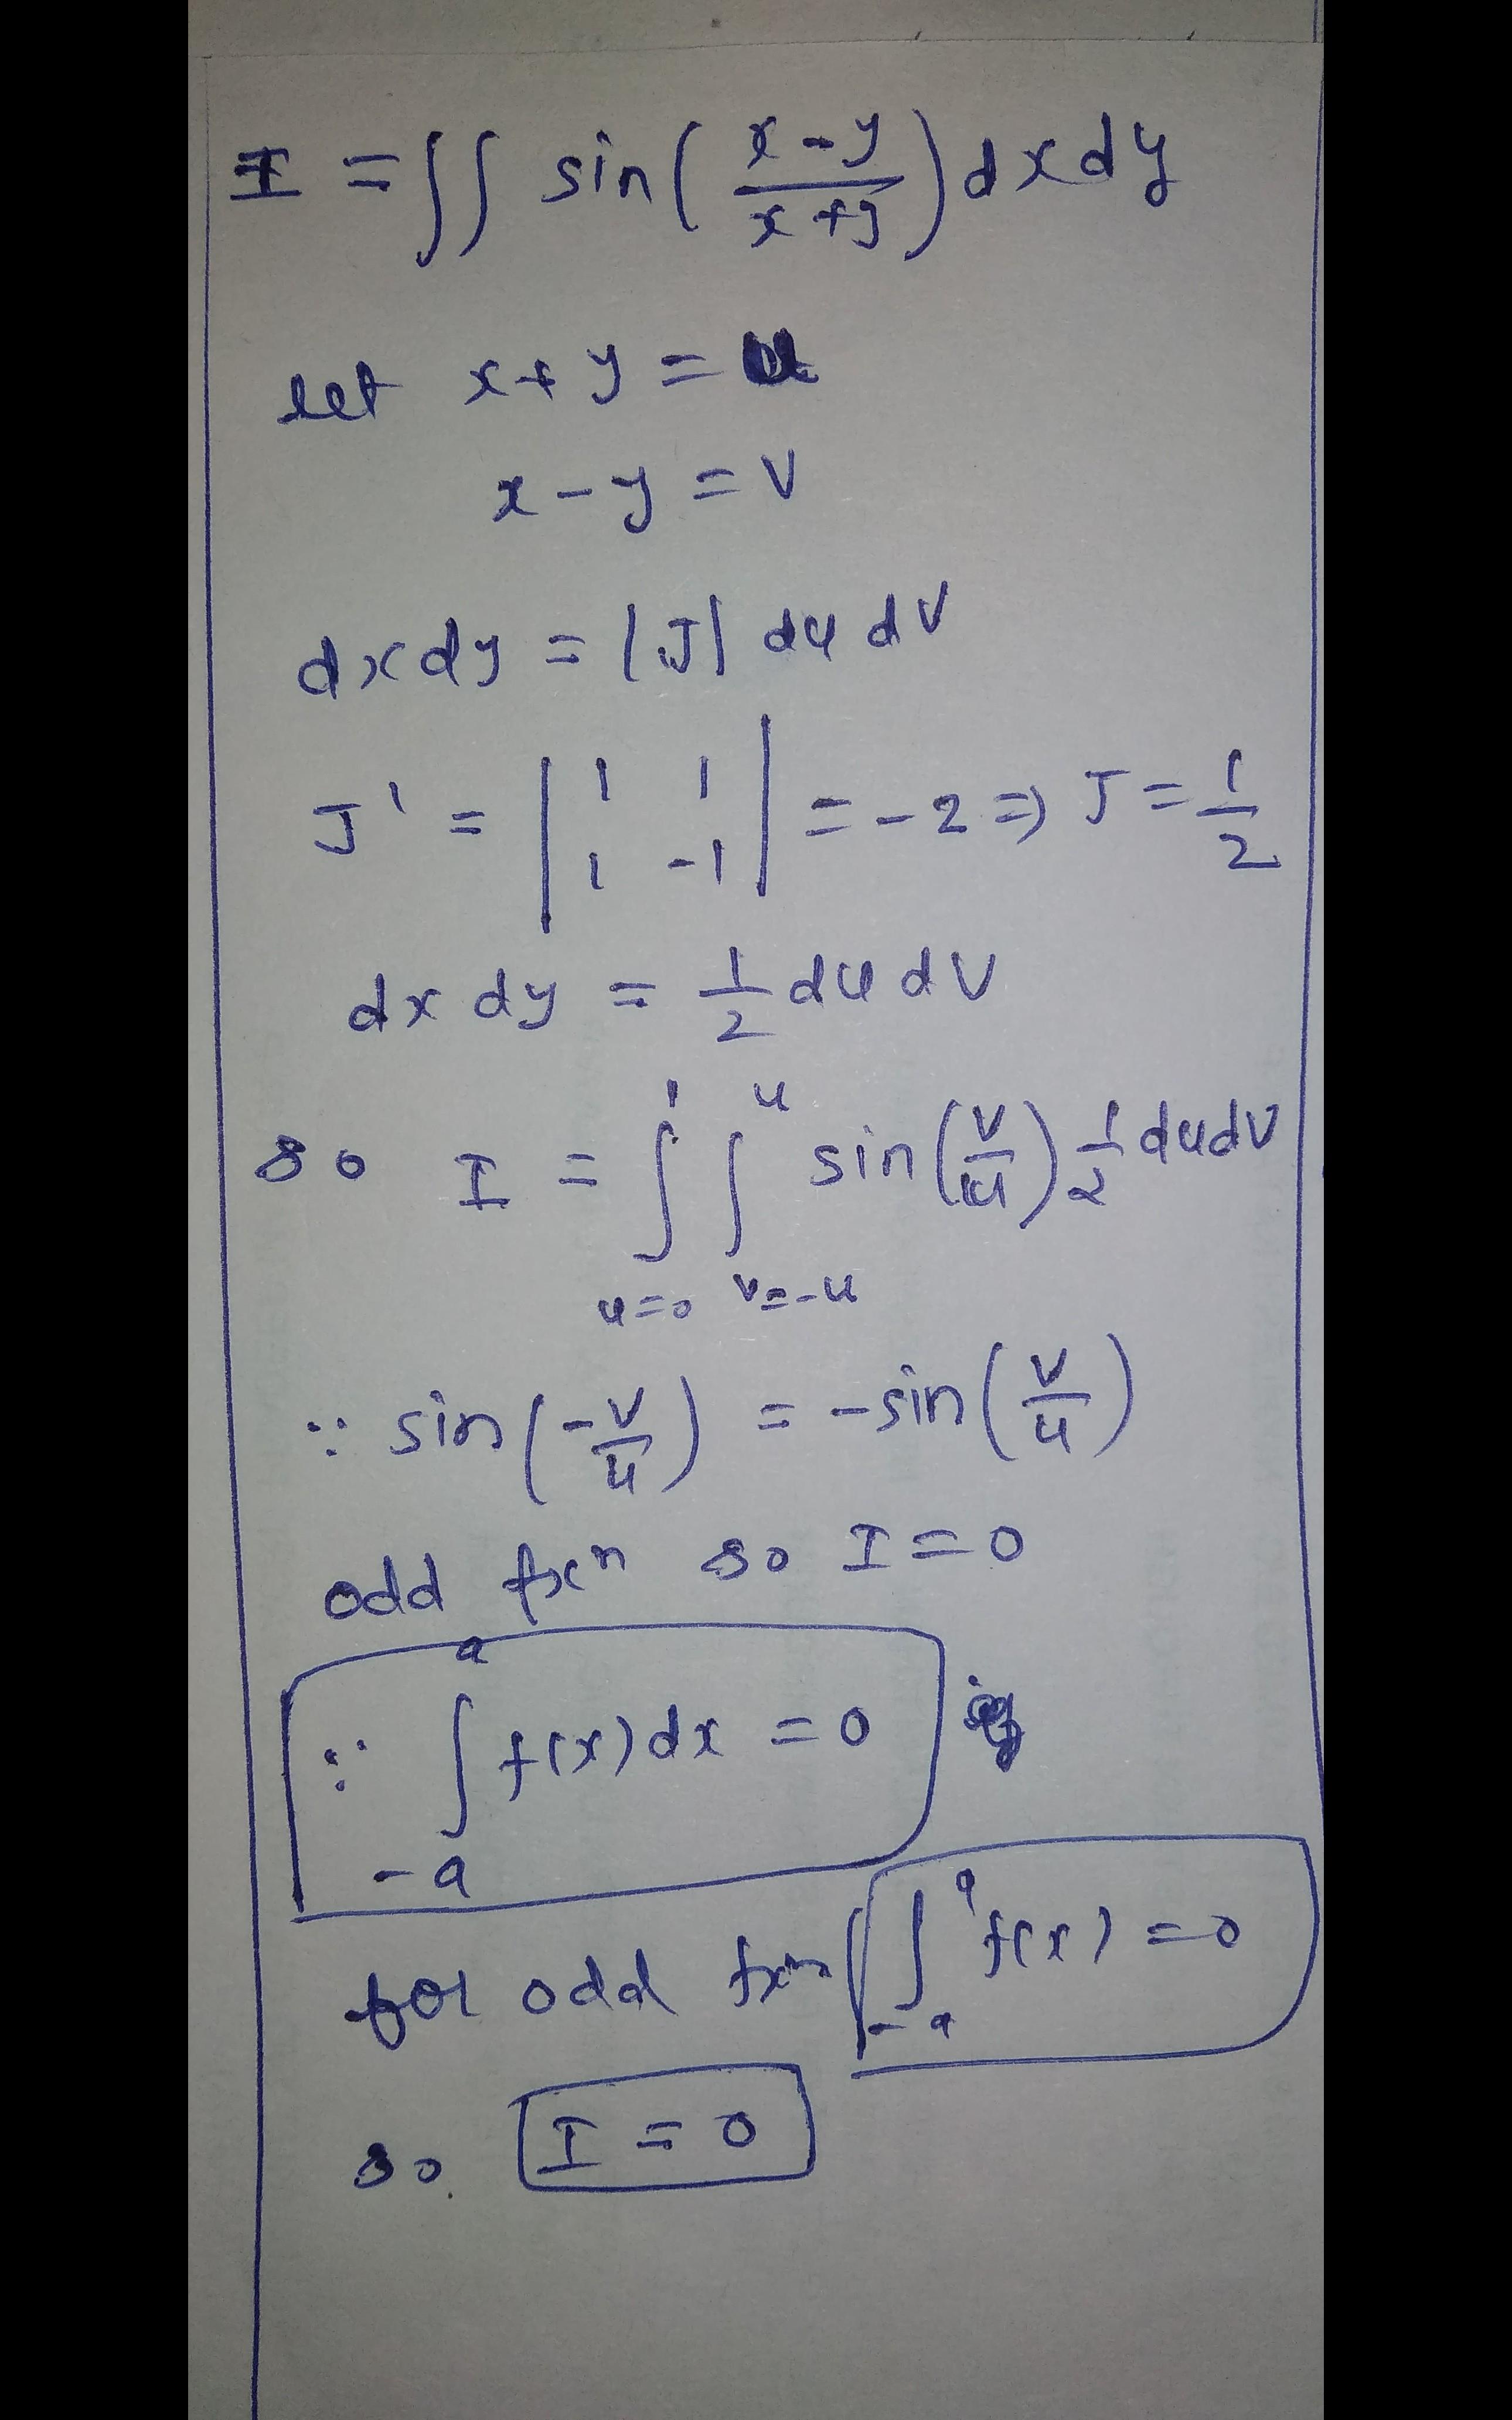 I = ∫∫ sin((x-y)/(x+y)) dxdy
let x+y = u
x-y = v
dxdy = |J| du dv
J' = |1 1; 1 -1| = -2 ⇒ J = 1/2
dx dy = 1/2 du dv
so I = ∫_{u=0}^{1} ∫_{v=-u}^{u} sin(v/u) 1/2 dudv
∵ sin(-v/u) = -sin(v/u)
odd fxn so I=0
∵ ∫_{-a}^{a} f(x)dx = 0
for odd fxn ∫_{-a}^{a} f(x) = 0
so. I = 0